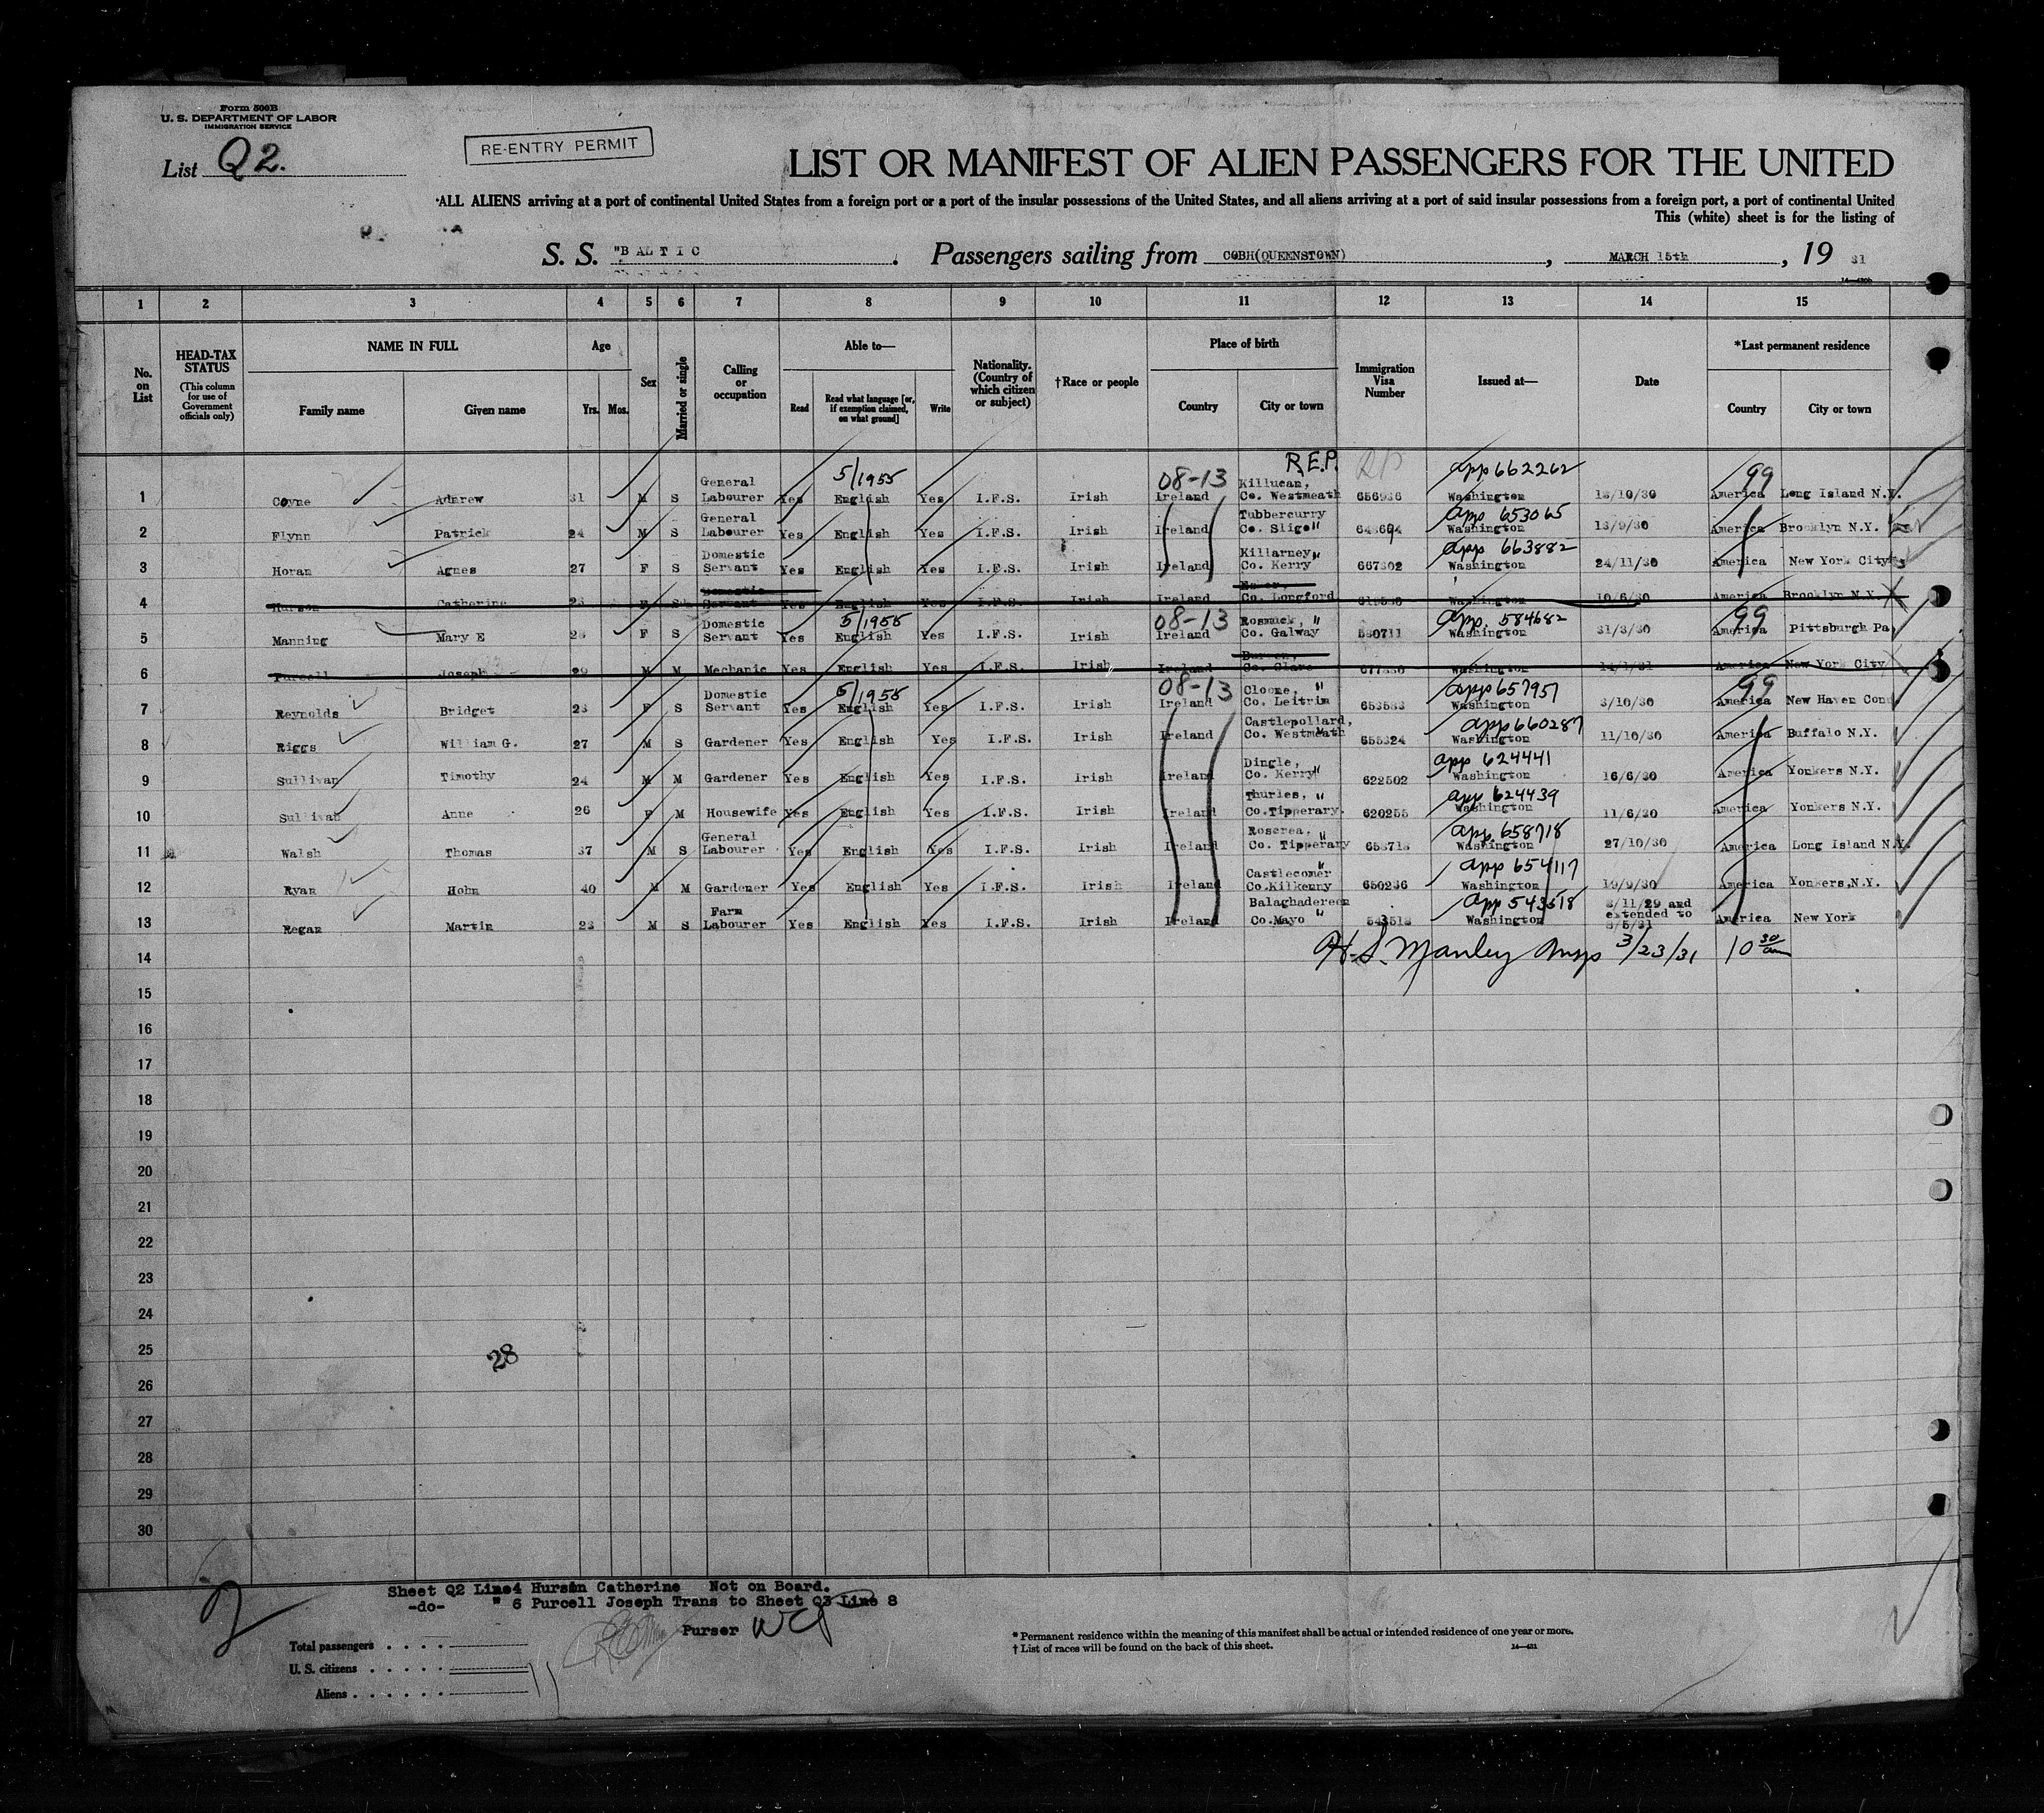 Form 500B
U. S. DEPARTMENT OF LABOR
IMMIGRATION SERVICE
List Q2.
RE-ENTRY PERMIT
LIST OR MANIFEST OF ALIEN PASSENGERS FOR THE UNITED
ALL ALIENS arriving at a port of continental United States from a foreign port or a port of the insular possessions of the United States, and all aliens arriving at a port of said insular possessions from a foreign port, a port of continental United
This (white) sheet is for the listing of
S. S. "BALTIC . Passengers sailing from COBH(QUEENSTOWN) , MARCH 15th , 19 31
1 2 3 4 5 6 7 8 9 10 11 12 13 14 15
No. on List
HEAD-TAX STATUS (This column for use of Government officials only)
NAME IN FULL
Family name Given name
Age
Yrs. Mos.
Sex
Married or single
Calling or occupation
Able to—
Read
Read what language [or, if exemption claimed, on what ground]
Write
Nationality. (Country of which citizen or subject)
†Race or people
Place of birth
Country City or town
Immigration Visa Number
Issued at—
Date
*Last permanent residence
Country City or town
R.E.P. RP
5/1955 08-13 app 662262 99
1 Coyne Adnrew 31 M S General Labourer Yes English Yes I.F.S. Irish Ireland Killucan, Co. Westmeath Washington 13/10/30 America Long Island N.Y.
app 653065
2 Flynn Patrick 24 M S General Labourer Yes English Yes I.F.S. Irish Ireland Tubbercurry Co. Sligo " Washington 13/9/30 America Brooklyn N.Y.
app 663882
3 Horan Agnes 27 F S Domestic Servant Yes English Yes I.F.S. Irish Ireland Killarney " Co. Kerry 667302 Washington 24/11/30 America New York City
4 Catherine Domestic Servant Yes English Yes I.F.S. Irish Ireland Co. Longford Washington 10/6/30 America Brooklyn N.Y.
5/1955 08-13 app. 584682 99
5 Manning Mary E F S Domestic Servant Yes English Yes I.F.S. Irish Ireland Rosmuck, " Co. Galway 580711 Washington 31/3/30 America Pittsburgh Pa.
6 Purcell Joseph M M Mechanic Yes English Yes I.F.S. Irish Ireland Co. Clare Washington 14/1/31 America New York City
5/1955 08-13 app 657957 99
7 Reynolds Bridget 23 F S Domestic Servant Yes English Yes I.F.S. Irish Ireland Cloone, " Co. Leitrim 653533 Washington 3/10/30 America New Haven Conn
app 660287
8 Riggs William G. 27 M S Gardener Yes English Yes I.F.S. Irish Ireland Castlepollard, Co. Westmeath 655324 Washington 11/10/30 America Buffalo N.Y.
app 624441
9 Sullivan Timothy 24 M M Gardener Yes English Yes I.F.S. Irish Ireland Dingle, Co. Kerry " 622502 Washington 16/6/30 America Yonkers N.Y.
app 624439
10 Sullivan Anne 26 F M Housewife Yes English Yes I.F.S. Irish Ireland Thurles, " Co.Tipperary. 620255 Washington 11/6/30 America Yonkers N.Y.
app 658718
11 Walsh Thomas 37 M S General Labourer Yes English Yes I.F.S. Irish Ireland Roscrea, " Co. Tipperary 658718 Washington 27/10/30 America Long Island N.Y.
app 654117
12 Ryan Hohn 40 M M Gardener Yes English Yes I.F.S. Irish Ireland Castlecomer " Co.Kilkenny 650236 Washington 19/9/30 America Yonkers,N.Y.
app 543518
13 Regan Martin 23 M S Farm Labourer Yes English Yes I.F.S. Irish Ireland Balaghadereen Co.Mayo " 543518 Washington 8/11/29 and extended to 8/5/31 America New York
14 H. S. Manley Insp 3/23/31 10 30 am
15
16
17
18
19
20
21
22
23
24
25
28
26
27
28
29
30
Sheet Q2 Line4 Hursin Catherine Not on Board.
-do- " 6 Purcell Joseph Trans to Sheet Q3 Line 8
2
Purser
Total passengers
U. S. citizens
Aliens
* Permanent residence within the meaning of this manifest shall be actual or intended residence of one year or more.
† List of races will be found on the back of this sheet.
14—421